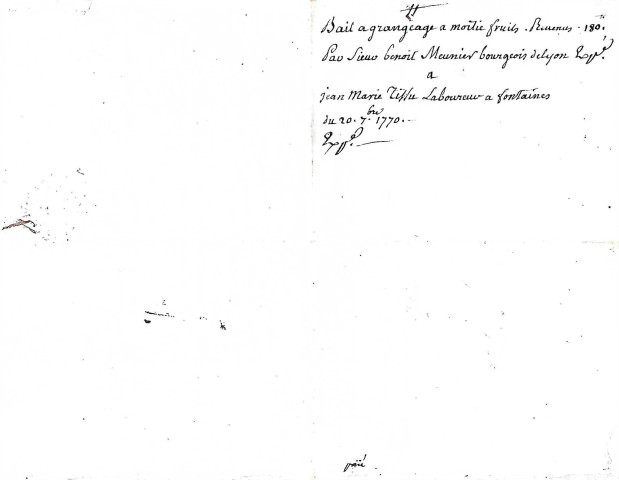 Bail a grangeage a moitie fruits . Revenus - 180.
Par Sieur benoit Meunier bourgeois de Lyon Expé.
a
jean Marie Tissu Laboureur a fontaines
du 20. 7.bre 1770.
Expé.
païé